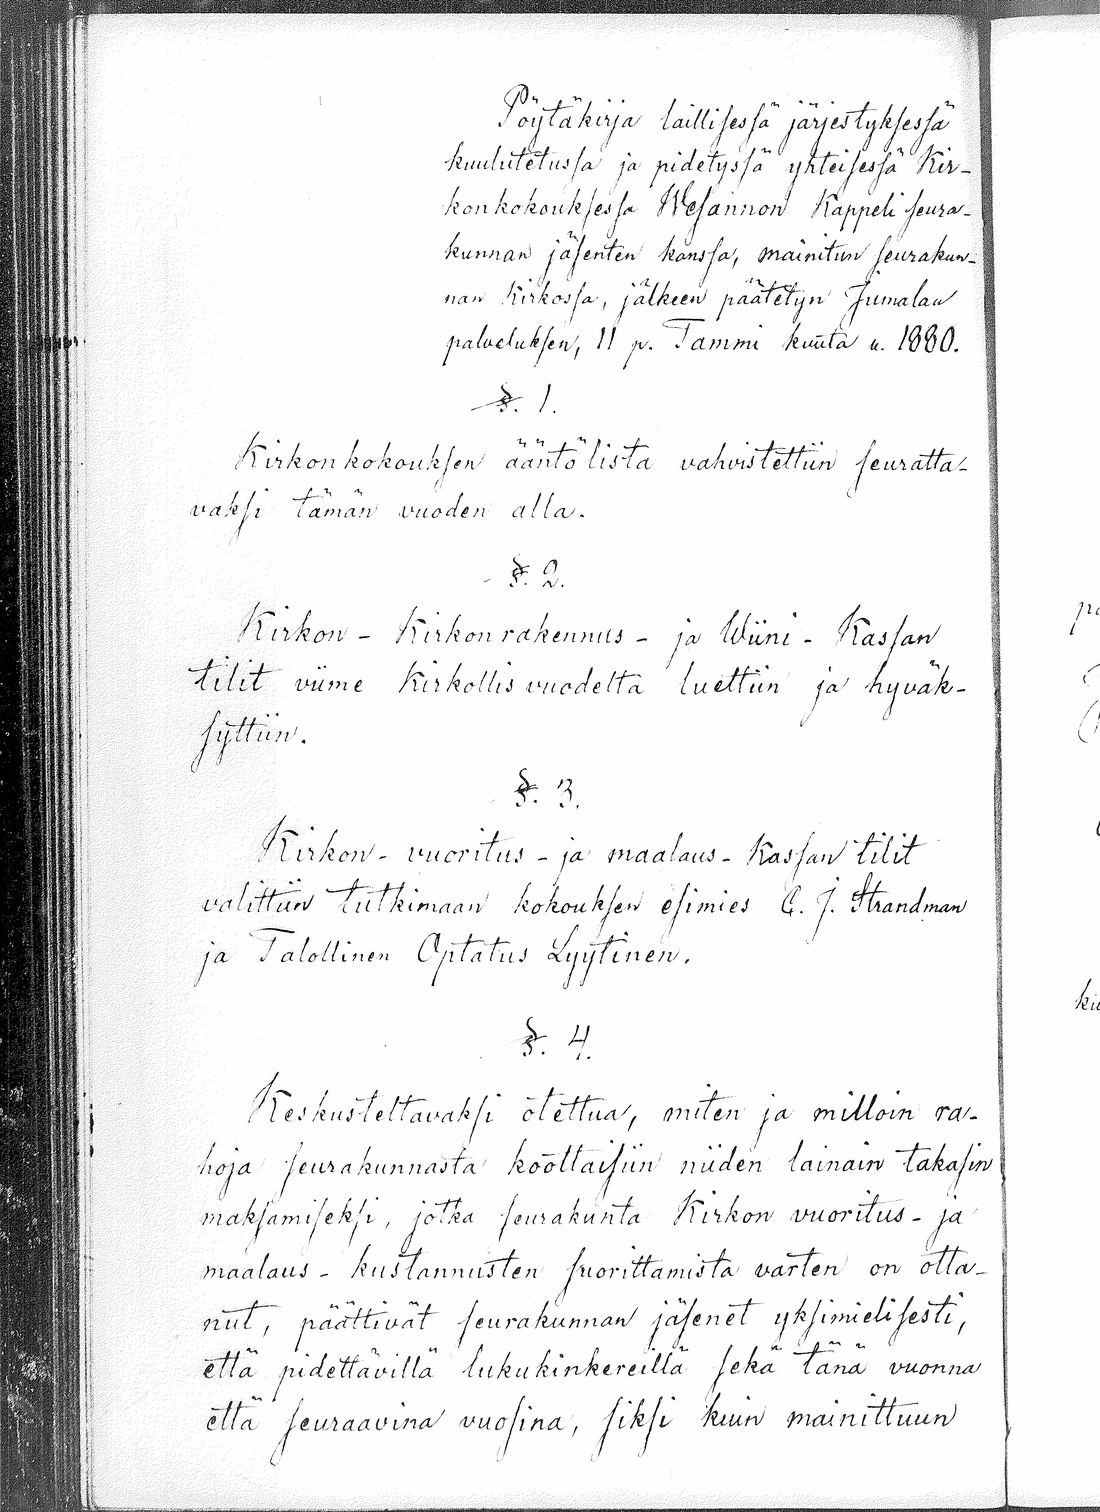 Pöytäkirja laillisessa järjestyksessä
kuulutetussa ja pidetyssä yhteisessä Kir-
konkokouksessa Wesannon Kappeli seura-
kunnan jäsenten kanssa, mainitun seurakun-
nan Kirkossa, jälkeen päätetyn Jumalan
palveluksen, 11 p. Tammi kuuta v. 1880.
§. 1.
Kirkonkokouksen ääntölista vahvistettiin seuratta-
vaksi tämän vuoden alla.
§. 2.
Kirkon - Kirkonrakennus - ja Wiini - Kassan
tilit viime Kirkollisvuodelta luettiin ja hyväk-
syttiin.
§. 3.
Kirkon - vuoritus - ja maalaus - Kassan tilit
valittiin tutkimaan kokouksen esimies C. J. Strandman
ja Talollinen Optatus Lyytinen.
§. 4.
Keskusteltavaksi otettua, miten ja milloin ra-
hoja seurakunnasta koottaisiin niiden lainain takasin
maksamiseksi, jotka seurakunta Kirkon vuoritus - ja
maalaus - kustannusten suorittamista varten on otta-
nut, päättivät seurakunnan jäsenet yksimielisesti,
että pidettävillä lukukinkereillä sekä tänä vuonna
että seuraavina vuosina, siksi kuin mainittuun